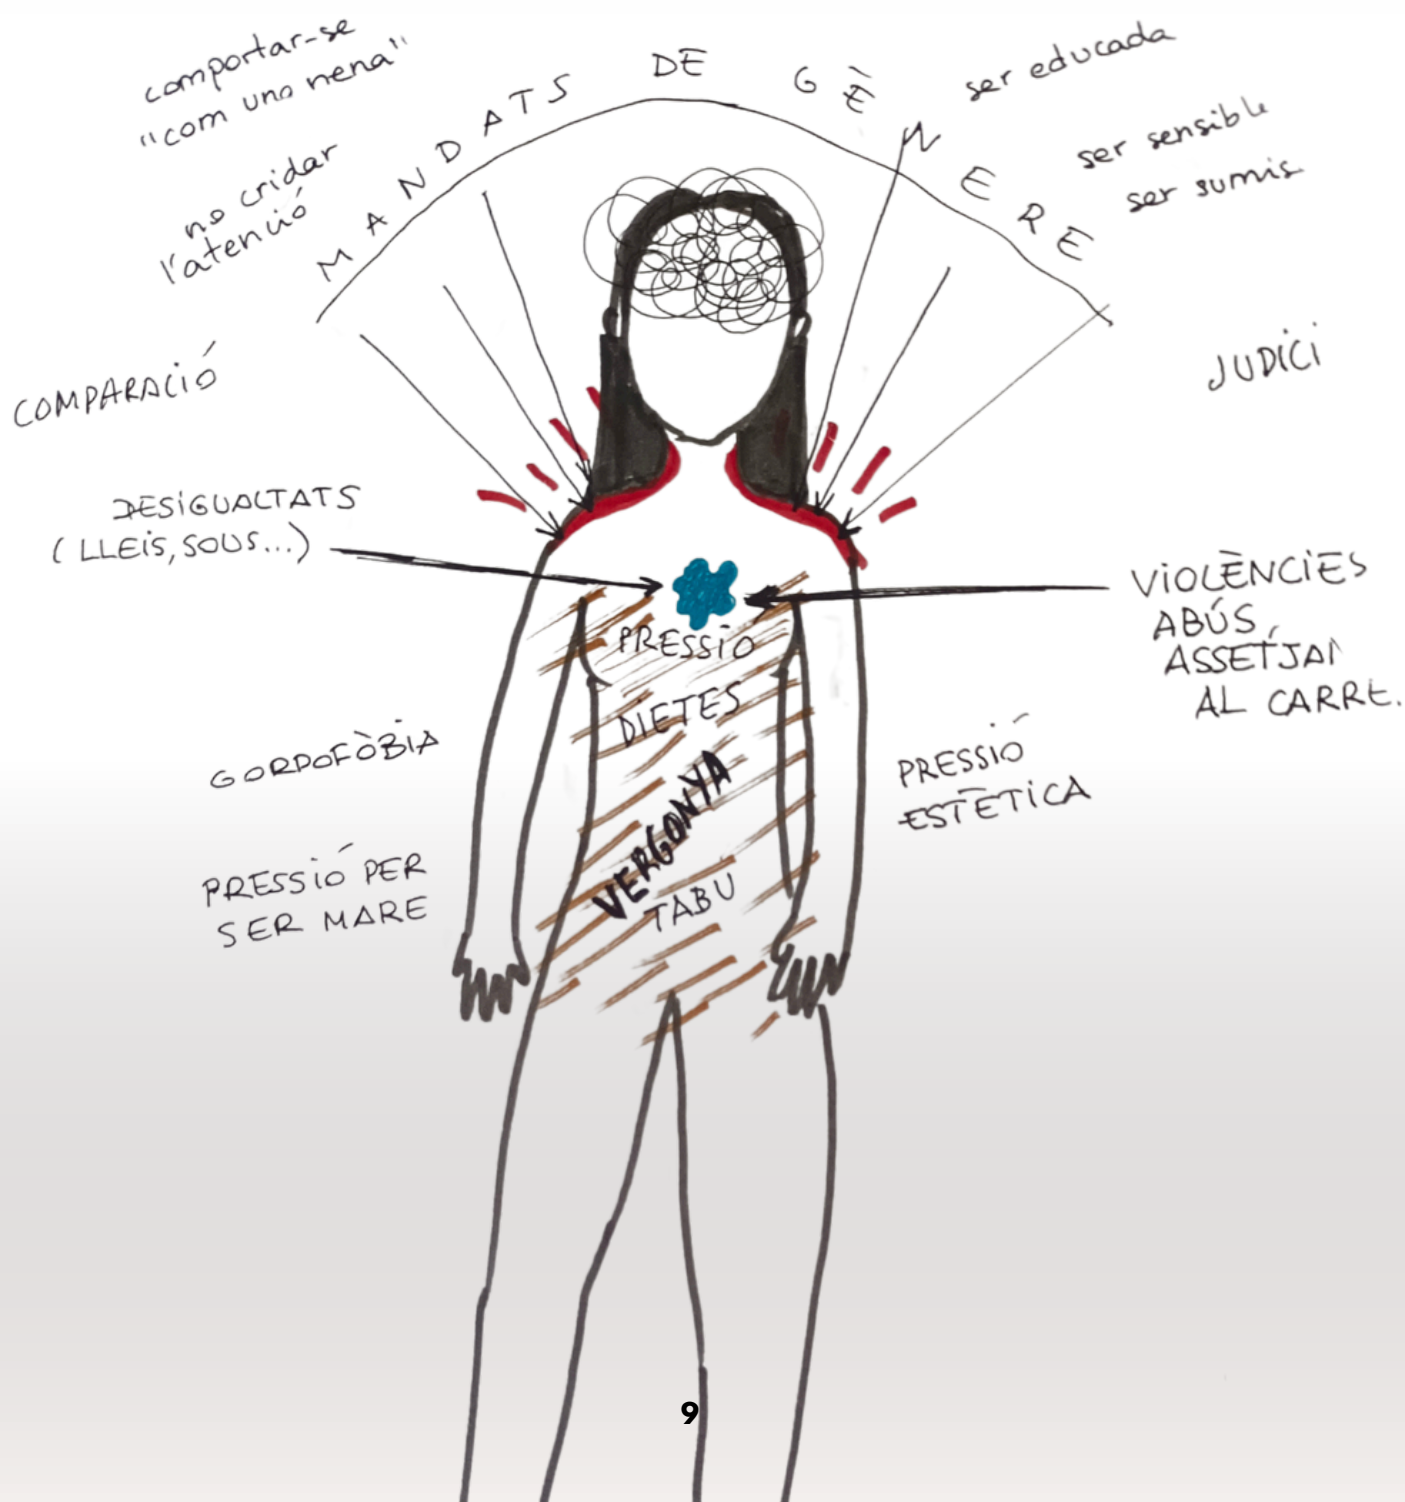 comportar-se
"com una nena"
no cridar
l'atenció
MANDATS DE GÈNERE
ser educada
ser sensible
ser sumis
COMPARACIÓ
JUDICI
DESIGUALTATS
(LLEIS, SOUS...)
VIOLÈNCIES
ABÚS,
ASSETJA
AL CARRE.
PRESSIÓ
DIETES
VERGONYA
TABU
GORDOFÒBIA
PRESSIÓ
ESTÈTICA
PRESSIÓ PER
SER MARE
9